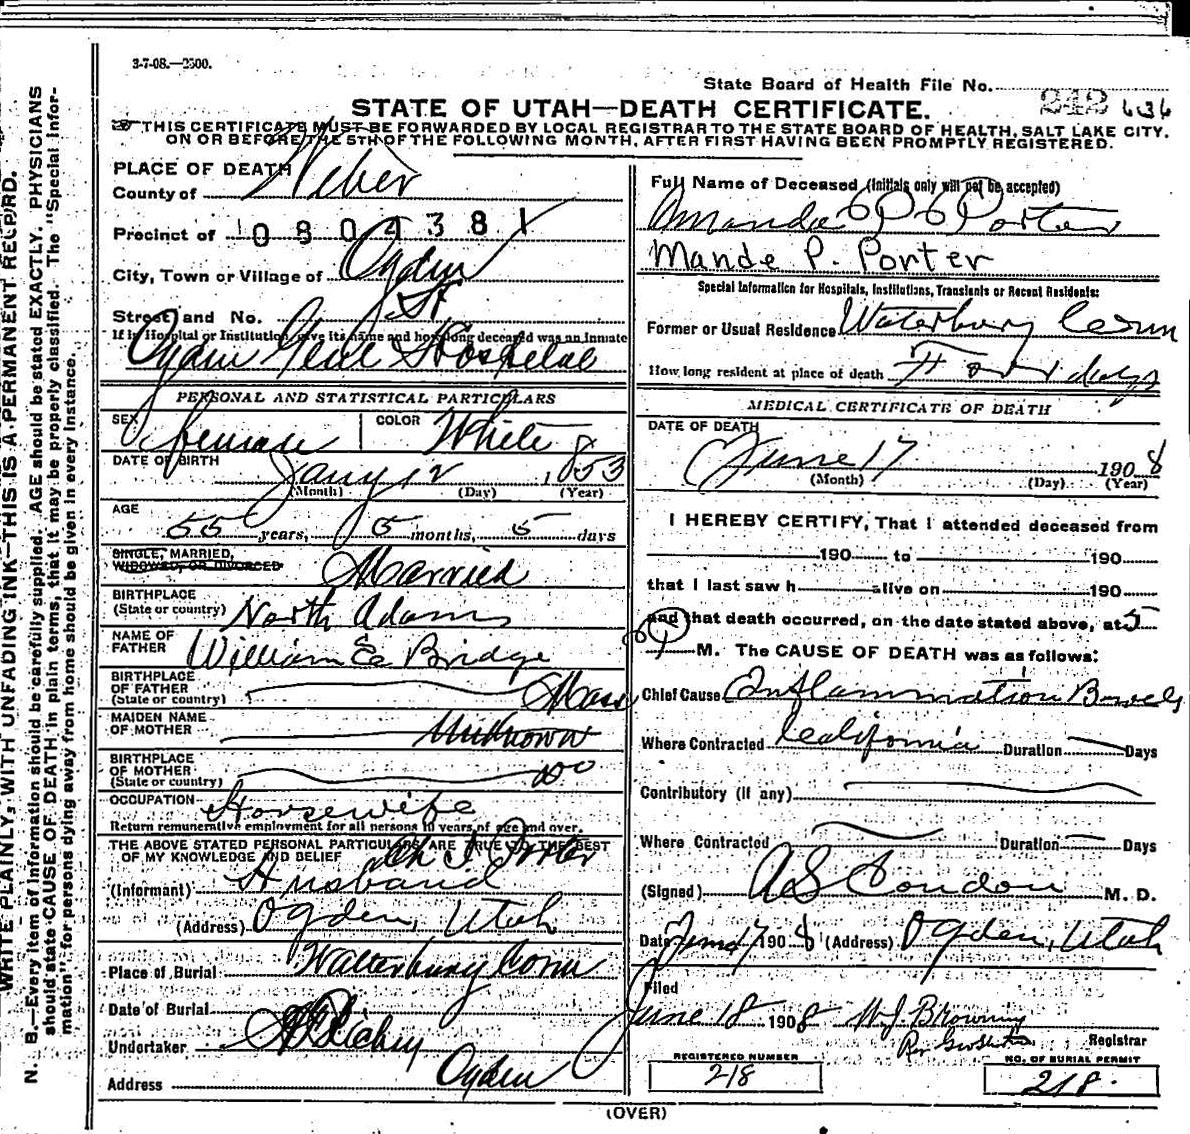 3-7-08.—2500.
State Board of Health File No. 242 636
STATE OF UTAH—DEATH CERTIFICATE.
THIS CERTIFICATE MUST BE FORWARDED BY LOCAL REGISTRAR TO THE STATE BOARD OF HEALTH, SALT LAKE CITY,
ON OR BEFORE THE 5TH OF THE FOLLOWING MONTH, AFTER FIRST HAVING BEEN PROMPTLY REGISTERED.
WRITE PLAINLY, WITH UNFADING INK—THIS IS A PERMANENT RECORD.
N. B.—Every item of information should be carefully supplied. AGE should be stated EXACTLY. PHYSICIANS
should state CAUSE OF DEATH in plain terms, that it may be properly classified. The "Special Infor-
mation" for persons dying away from home should be given in every instance.
PLACE OF DEATH
County of Weber
Precinct of 0804381
City, Town or Village of Ogden
Street and No. St
If in Hospital or Institution, give its name and how long deceased was an inmate
Ogden Genl Hospital
PERSONAL AND STATISTICAL PARTICULARS
SEX female COLOR White
DATE OF BIRTH Jany 12 1853
(Month) (Day) (Year)
AGE
55 years, 5 months, 5 days
SINGLE, MARRIED,
WIDOWED, OR DIVORCED Married
BIRTHPLACE
(State or country) North Adams
NAME OF
FATHER William E Bridge
BIRTHPLACE
OF FATHER
(State or country) Mass
MAIDEN NAME
OF MOTHER Unknown
BIRTHPLACE
OF MOTHER
(State or country) do
OCCUPATION Housewife
Return remunerative employment for all persons 10 years of age and over.
THE ABOVE STATED PERSONAL PARTICULARS ARE TRUE TO THE BEST
OF MY KNOWLEDGE AND BELIEF Porter
(Informant) Husband
(Address) Ogden, Utah
Place of Burial Watterbury Conn
Date of Burial
Undertaker Richey
Address Ogden
Full Name of Deceased (Initials only will not be accepted)
Amanda P Porter
Mande P. Porter
Special Information for Hospitals, Institutions, Transients or Recent Residents:
Former or Usual Residence Waterbury Conn
How long resident at place of death days
MEDICAL CERTIFICATE OF DEATH
DATE OF DEATH
June 17 1908
(Month) (Day) (Year)
I HEREBY CERTIFY, That I attended deceased from
190 to 190
that I last saw h alive on 190
and that death occurred, on the date stated above, at 5
M. The CAUSE OF DEATH was as follows:
Chief Cause Inflammation Bowels
Where Contracted California Duration Days
Contributory (if any)
Where Contracted Duration Days
(Signed) A S Condon M. D.
Date June 17 1908 (Address) Ogden, Utah
Filed
June 18 1908 W J. Browning
Registrar
REGISTERED NUMBER
218
NO. OF BURIAL PERMIT
218
(OVER)